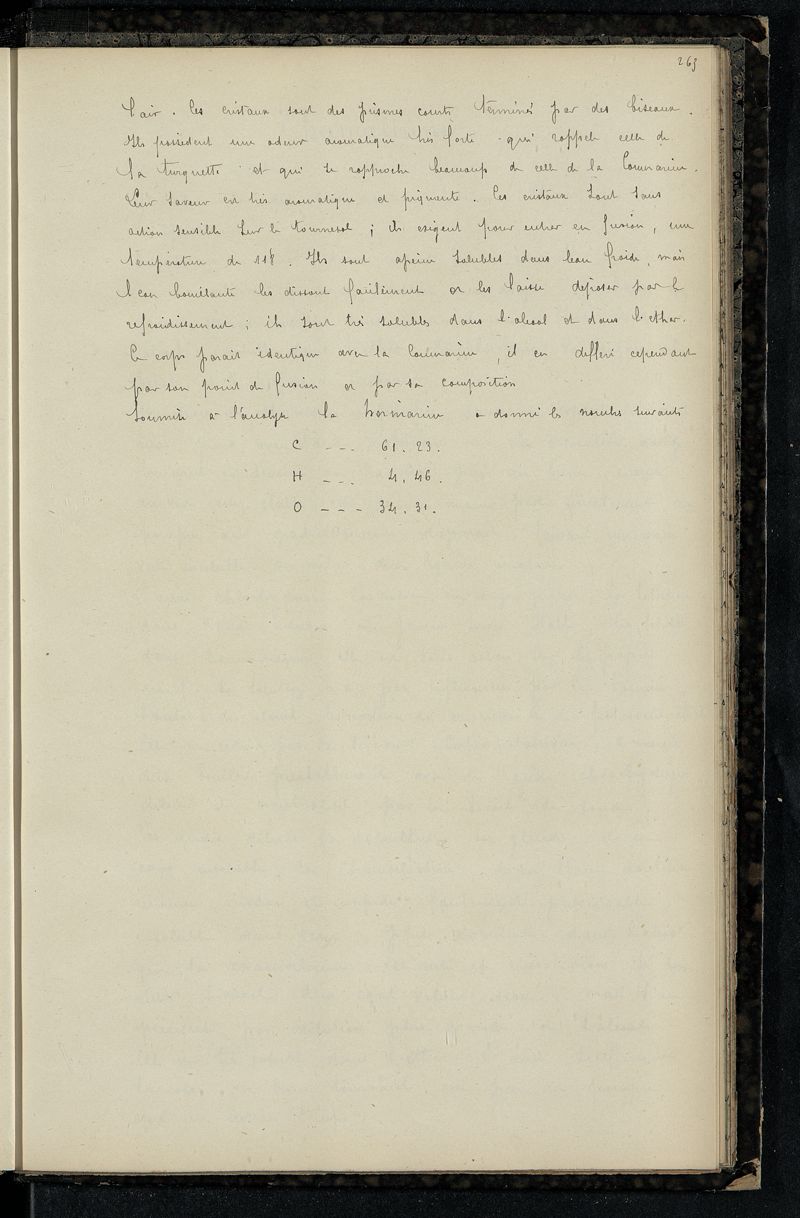 269
l'air. Ces cristaux sont des prismes courts terminés par des biseaux.
Ils possèdent une odeur aromatique très forte qui rappele celle de
la turquette et qui se rapproche beaucoup de celle de la Coumarine.
Leur saveur est très aromatique et piquante. Ces cristaux sont sans
action sensible sur le tournesol ; ils exigent pour entrer en fusion, une
température de 118°. Ils sont apeine solubles dans leau froide, mais
l eau bouillante les dissout facilement et les laisse déposer par le
refroidissement ; ils sont très solubles dans l'alcool et dans l'ether.
Ce corps parait identique avec la Coumarine, il en différe cependant
par son point de fusion et par sa composition
Soumise à l'analyse la herniarine a donné les nombres suivants
C --- 61. 23.
H --- 4. 46.
O --- 34. 31.